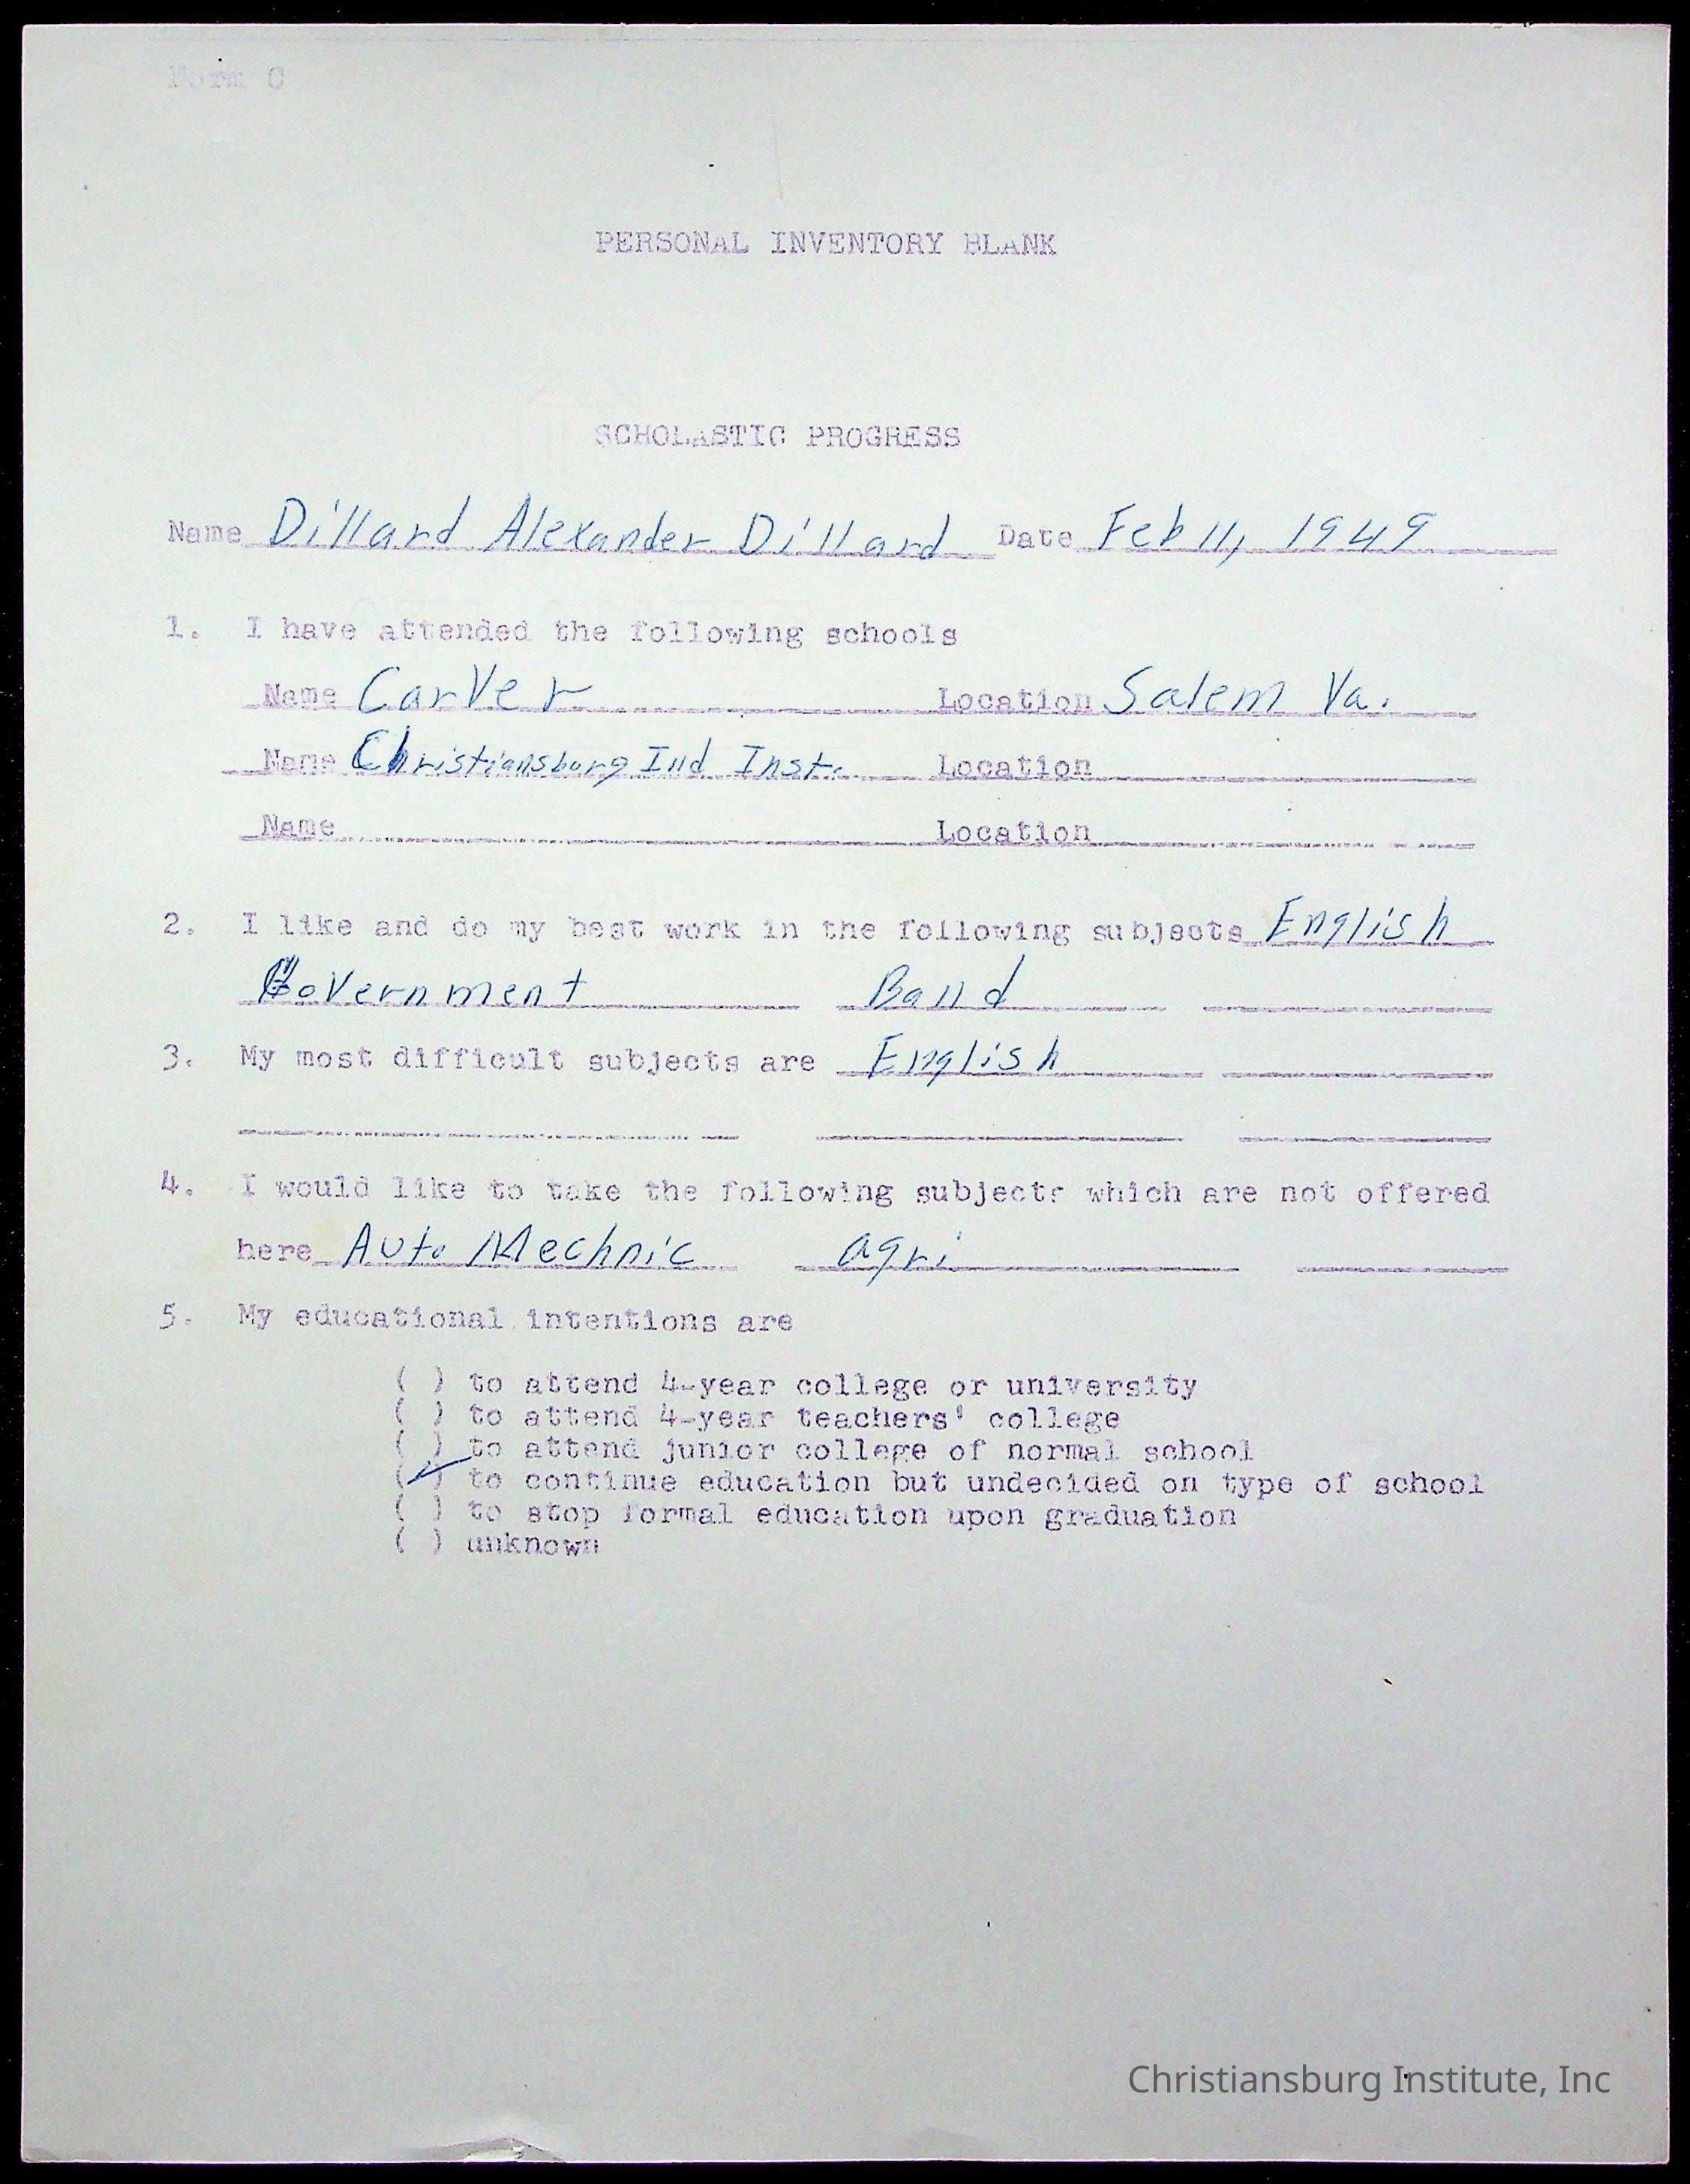 Form C
PERSONAL INVENTORY BLANK
SCHOLASTIC PROGRESS
Name Dillard Alexander Dillard Date Feb 11, 1949
1. I have attended the following schools
Name Carver Location Salem Va.
Name Christiansburg Ind Inst. Location
Name Location
2. I like and do my best work in the following subjects English
Government Band
3. My most difficult subjects are English
4. I would like to take the following subjects which are not offered
here Auto Mechnic agri
5. My educational intentions are
( ) to attend 4-year college or university
( ) to attend 4-year teachers' college
( ) to attend junior college of normal school
(✓) to continue education but undecided on type of school
( ) to stop formal education upon graduation
( ) unknown
Christiansburg Institute, Inc